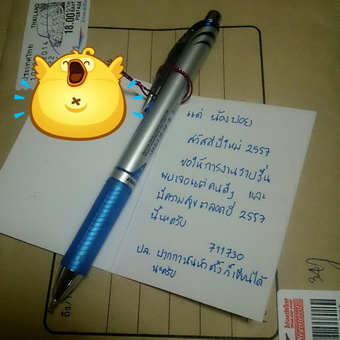 THAILAND
18.00
2014
แด่ น้องปอย
สวัสดีปีใหม่ 2557
ขอให้การงานราบรื่น
พบเจอแต่คนดีๆ และ
มีความสุขตลอดปี 2557
นี้นะครับ
711730
ปล. ปากกานั่นน่ะ
ก็เขียนได้
นะครับ